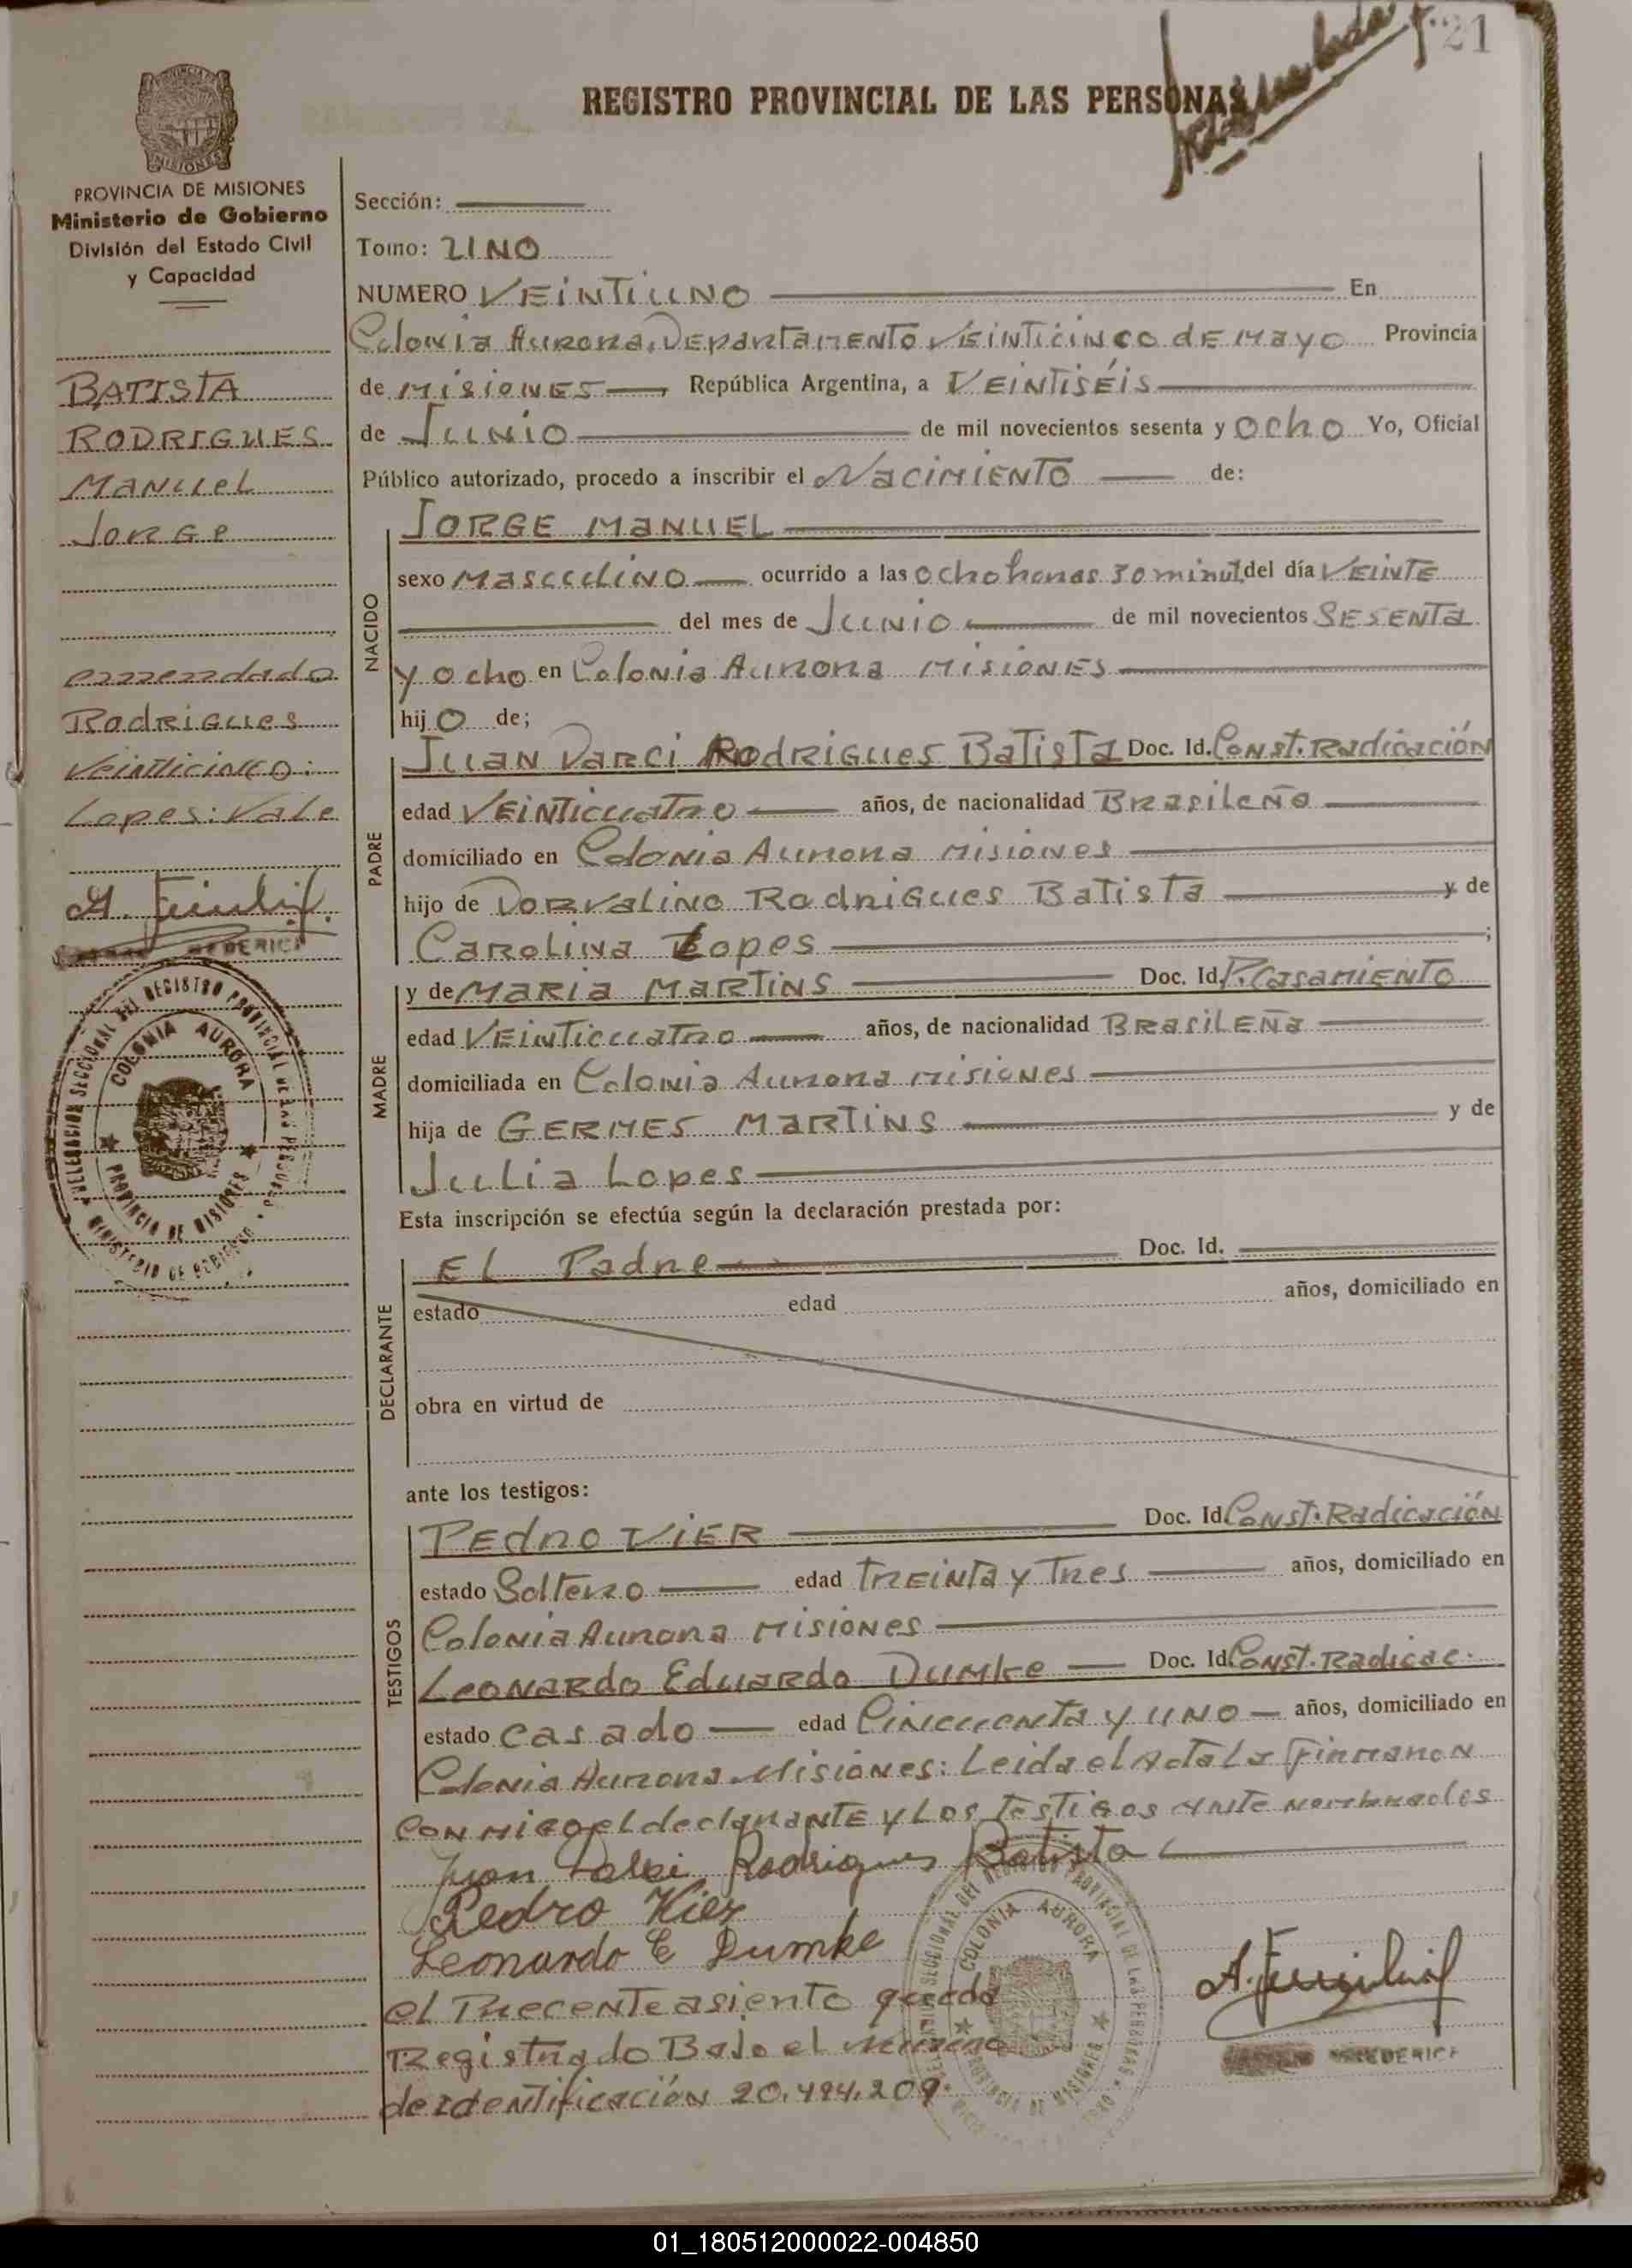 21
REGISTRO PROVINCIAL DE LAS PERSONAS
PROVINCIA DE MISIONES
Ministerio de Gobierno
División del Estado Civil
y Capacidad
BATISTA
RODRIGUES
MANUEL
JORGE
enmendado
Rodrigues
Veinticinco:
Lopes: Vale
Sección:
Tomo: UNO
NUMERO VEINTIUNO En
Colonia Aurora, Departamento Veinticinco de Mayo Provincia
de MISIONES República Argentina, a VEINTISÉIS
de JUNIO de mil novecientos sesenta y ocho Yo, Oficial
Público autorizado, procedo a inscribir el NACIMIENTO de:
NACIDO
JORGE MANUEL
sexo MASCULINO ocurrido a las ocho horas 30 minut del día VEINTE
del mes de JUNIO de mil novecientos SESENTA
y ocho en Colonia Aurora MISIONES
hijo de;
PADRE
JUAN DARCI RODRIGUES BATISTA Doc. Id. Const. Radicación
edad VEINTICUATRO años, de nacionalidad Brasileño
domiciliado en Colonia Aurora Misiones
hijo de DORVALINO RODRIGUES BATISTA y de
CAROLINA LOPES ;
MADRE
y de MARIA MARTINS Doc. Id. P. CASAMIENTO
edad VEINTICUATRO años, de nacionalidad BRASILEÑA
domiciliada en Colonia Aurora Misiones
hija de GERMES MARTINS y de
JULIA LOPES
Esta inscripción se efectúa según la declaración prestada por:
DECLARANTE
EL Padre Doc. Id.
estado edad años, domiciliado en
obra en virtud de
ante los testigos:
TESTIGOS
PEDRO VIER Doc. Id. Const. Radicación
estado Soltero edad TREINTA y Tres años, domiciliado en
Colonia Aurora Misiones
LEONARDO EDUARDO DUMKE Doc. Id. Const. Radicac.
estado casado edad Cincuenta y UNO años, domiciliado en
Colonia Aurora Misiones: Leida el Acta La Firmaron
conmigo el declarante y Los Testigos Ante nombrados
Juan Darci Rodrigues Batista
Pedro Vier
Leonardo E Dumke
el Precente asiento queda
Registrado Bajo el numero
de identificación 20.484.209.
DELEGACION SECCIONAL DEL REGISTRO PROVINCIAL DE LAS PERSONAS
COLONIA AURORA
PROVINCIA DE MISIONES
MINISTERIO DE GOBIERNO
COLONIA AURORA
PROVINCIA DE MISIONES
01_180512000022-004850